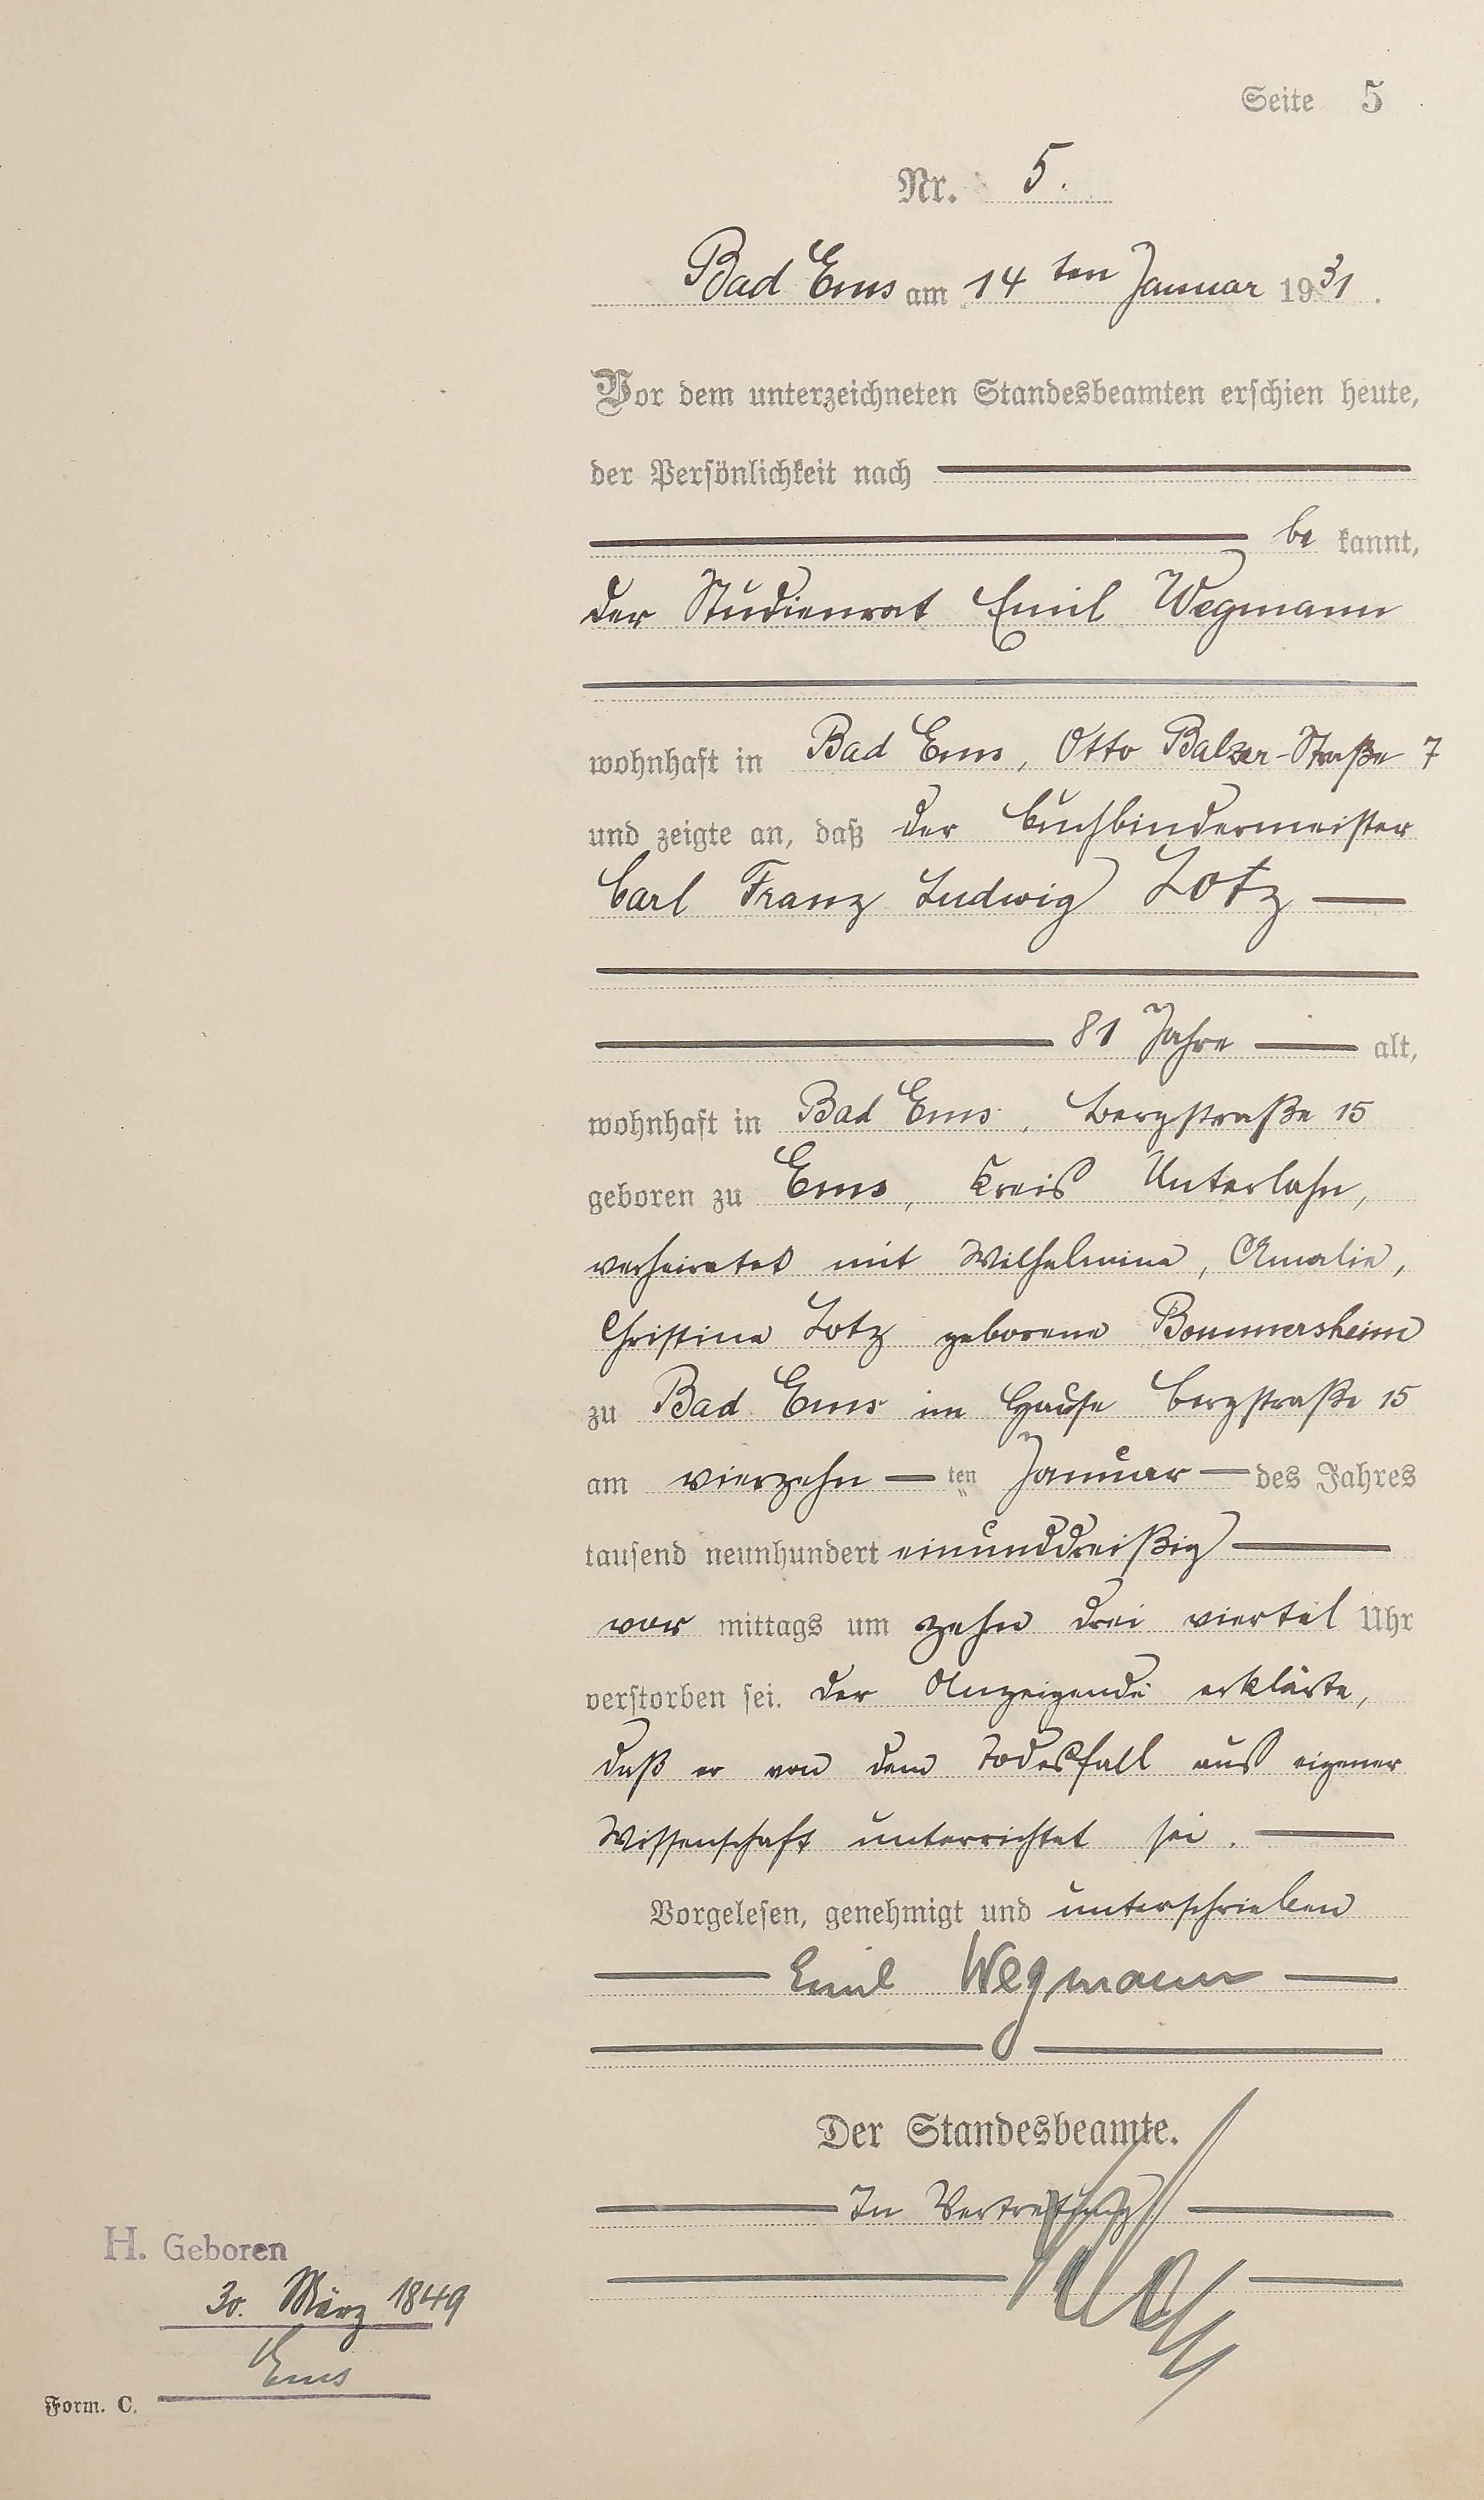 Seite 5
Nr. 5.
Bad Ems am 14 ten Januar 1931.
Vor dem unterzeichneten Standesbeamten erschien heute,
der Persönlichkeit nach
be kannt,
der Studienrat Emil Wegmann
wohnhaft in Bad Ems, Otto Balzer-Straße 7
und zeigte an, daß der Buchbindermeister
Carl Franz Ludwig Lotz
81 Jahre alt,
wohnhaft in Bad Ems, Bergstraße 15
geboren zu Ems, Kreis Unterlahn,
verheiratet mit Wilhelmine, Amalie,
Christine Lotz geborene Bommersheim
zu Bad Ems im Hause Bergstraße 15
am vierzehn ten Januar des Jahres
tausend neunhundert einunddreißig
vor mittags um zehn drei viertel Uhr
verstorben sei. Der Anzeigende erklärte,
daß er von dem Todesfall aus eigener
Wissenschaft unterrichtet sei.
Vorgelesen, genehmigt und unterschrieben
Emil Wegmann
Der Standesbeamte.
In Vertretung
H. Geboren
30. März 1849
Ems
Form. C.